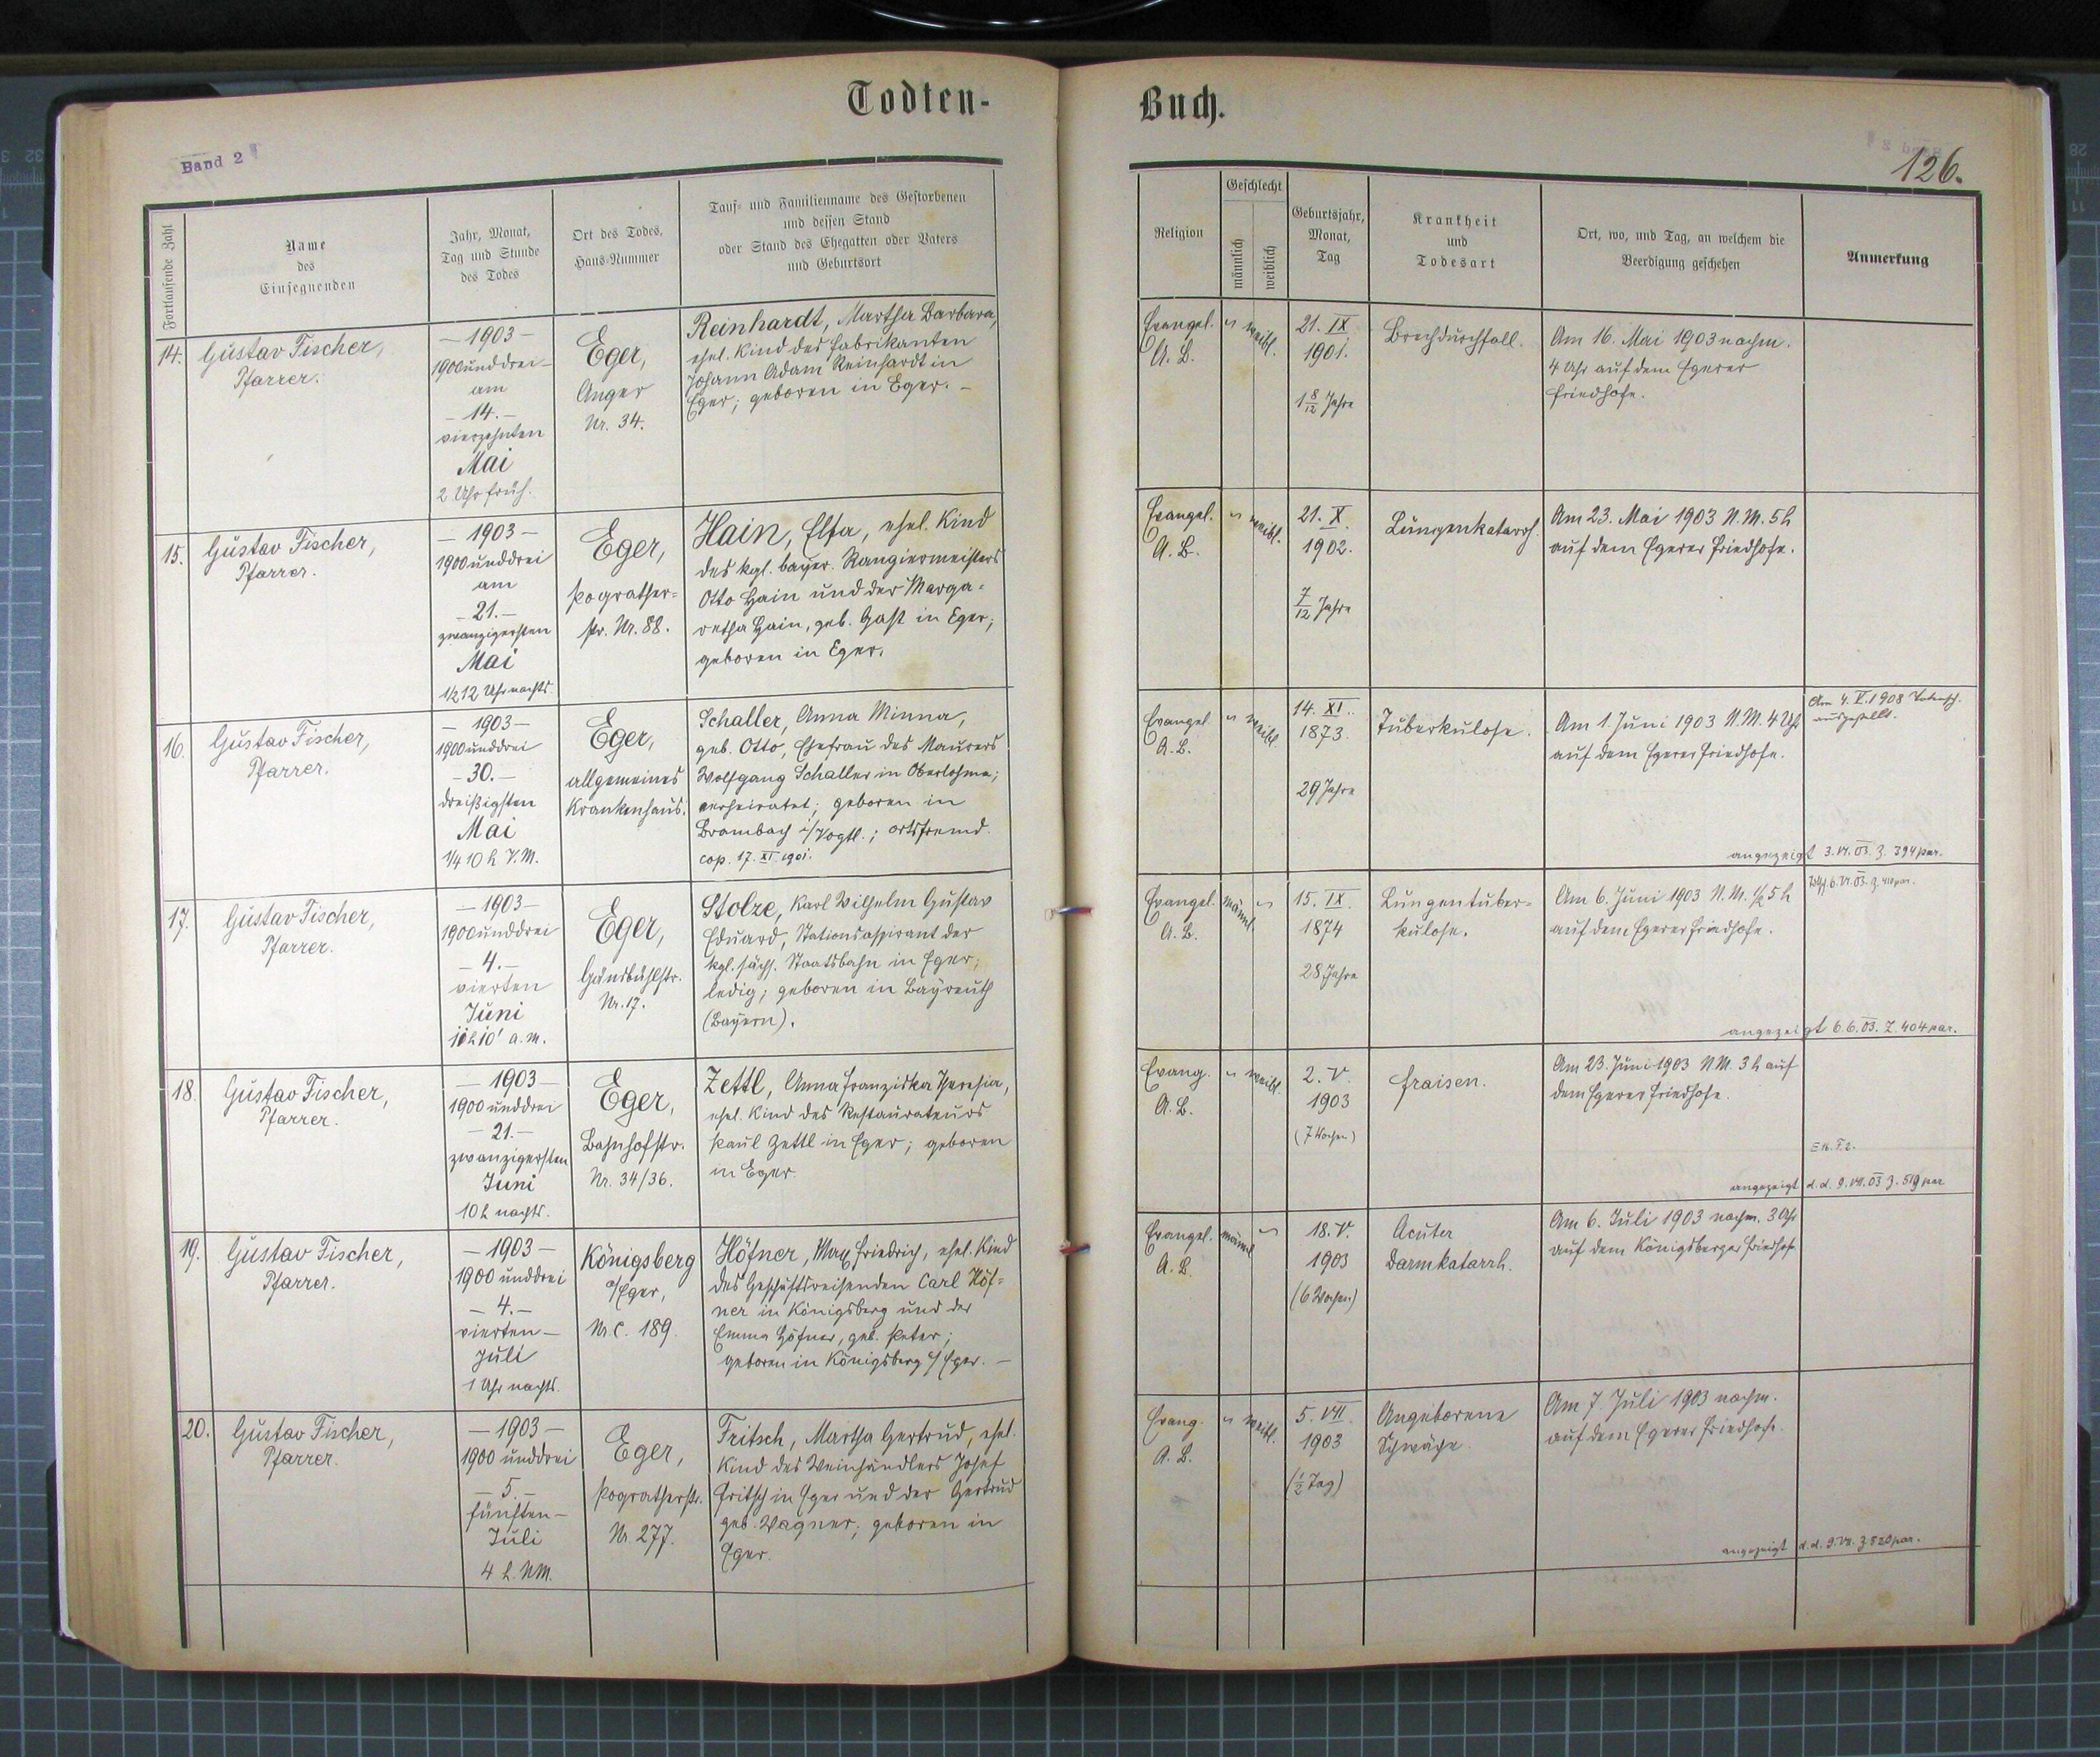 Todten-
Buch.
Band 2
126.
Fortlaufende Zahl
Name
des
Einsegnenden
Jahr, Monat,
Tag und Stunde
des Todes
Ort des Todes,
Haus-Nummer
Tauf- und Familienname des Gestorbenen
und dessen Stand
oder Stand des Ehegatten oder Vaters
und Geburtsort
Religion
Geschlecht
männlich
weiblich
Geburtsjahr,
Monat,
Tag
Krankheit
und
Todesart
Ort, wo, und Tag, an welchem die
Beerdigung geschehen
Anmerkung
14.
Gustav Fischer,
Pfarrer.
– 1903 –
1900 und drei –
am
– 14. –
vierzehnten
Mai
2 Uhr früh.
Eger,
Anger
Nr. 34.
Reinhardt, Martha Barbara,
ehel. Kind des Fabrikanten
Johann Adam Reinhardt in
Eger; geboren in Eger. –
Evangel.
A. B.
"
weibl.
21. IX
1901.
1 8/12 Jahre
Brechdurchfall.
Am 16. Mai 1903 nachm.
4 Uhr auf dem Egerer
Friedhofe.
15.
Gustav Fischer,
Pfarrer.
– 1903 –
1900 und drei
am
– 21. –
zwanzigersten
Mai
1/2 12 Uhr nachts.
Eger,
Pograther-
str. Nr. 88.
Hain, Elsa, ehel. Kind
des kgl. bayer. Rangiermeisters
Otto Hain und der Marga-
retha Hain, geb. Gast in Eger;
geboren in Eger.
Evangel.
A. B.
"
weibl.
21. X.
1902.
7/12 Jahre
Lungenkatarrh.
Am 23. Mai 1903 N.M. 5 h
auf dem Egerer Friedhofe.
16.
Gustav Fischer,
Pfarrer.
– 1903 –
1900 und drei
– 30. –
dreißigsten
Mai
1/4 10 h V.M.
Eger,
allgemeines
Krankenhaus.
Schaller, Anna Minna,
geb. Otto, Ehefrau des Maurers
Wolfgang Schaller in Oberlohma;
verheiratet; geboren in
Brambach i/Vogtl.; ortsfremd.
cop. 17. XI. 1901.
Evangel.
A. B.
"
weibl.
14. XI.
1873.
29 Jahre
Tuberkulose.
Am 1. Juni 1903 N.M. 4 Uhr
auf dem Egerer Friedhofe.
Am 4. V. 1908 Totensch.
ausgestellt.
angezeigt 3. VI. 03. Z. 394 par.
17.
Gustav Fischer,
Pfarrer.
– 1903 –
1900 und drei
– 4. –
vierten
Juni
11 h 10' a. m.
Eger,
Gänsbühlstr.
Nr. 17.
Stolze, Karl Wilhelm Gustav
Eduard, Stationsaspirant der
kgl. sächs. Staatsbahn in Eger;
ledig; geboren in Bayreuth
(Bayern).
Evangel.
A. B.
männl.
"
15. IX.
1874
28 Jahre
Lungentuber-
kulose.
Am 6. Juni 1903 N.M. 1/2 5 h
auf dem Egerer Friedhofe.
6. VI. 03. Z. 410 par.
angezeigt 6. 6. 03. Z. 404 par.
18.
Gustav Fischer,
Pfarrer.
– 1903 –
1900 und drei
– 21. –
zwanzigersten
Juni
10 h nachts.
Eger,
Bahnhofstr.
Nr. 34/36.
Zettl, Anna Franziska Theresia,
ehel. Kind des Restaurateurs
Paul Zettl in Eger; geboren
in Eger.
Evang.
A. B.
"
weibl.
2. V.
1903
(7 Wochen)
Fraisen.
Am 23. Juni 1903 N.M. 3 h auf
dem Egerer Friedhofe.
angezeigt d. d. 9. VII. 03 Z. 519 par
19.
Gustav Fischer,
Pfarrer.
– 1903 –
1900 und drei
– 4. –
vierten –
Juli
1 Uhr nachts.
Königsberg
a/Eger,
Nr C. 189.
Höfner, Max Friedrich, ehel. Kind
des Geschäftsreisenden Carl Höf-
ner in Königsberg und der
Emma Höfner, geb. Peter;
geboren in Königsberg a/Eger. –
Evangel.
A. B.
männl.
"
18. V.
1903
(6 Wochen)
Acuter
Darmkatarrh.
Am 6. Juli 1903 nachm. 3 Uhr
auf dem Königsberger Friedhofe
20.
Gustav Fischer,
Pfarrer.
– 1903 –
1900 und drei
– 5. –
fünften –
Juli
4 h. NM.
Eger,
Pogratherstr.
Nr. 277.
Fritsch, Martha Gertrud, ehel.
Kind des Weinhändlers Josef
Fritsch in Eger und der Gertrud
geb. Wagner; geboren in
Eger.
Evang.
A. B.
"
weibl.
5. VII.
1903
(1/2 Tag)
Angeborene
Schwäche.
Am 7. Juli 1903 nachm.
auf dem Egerer Friedhofe.
angezeigt d. d. 9. VII. Z 520 par.